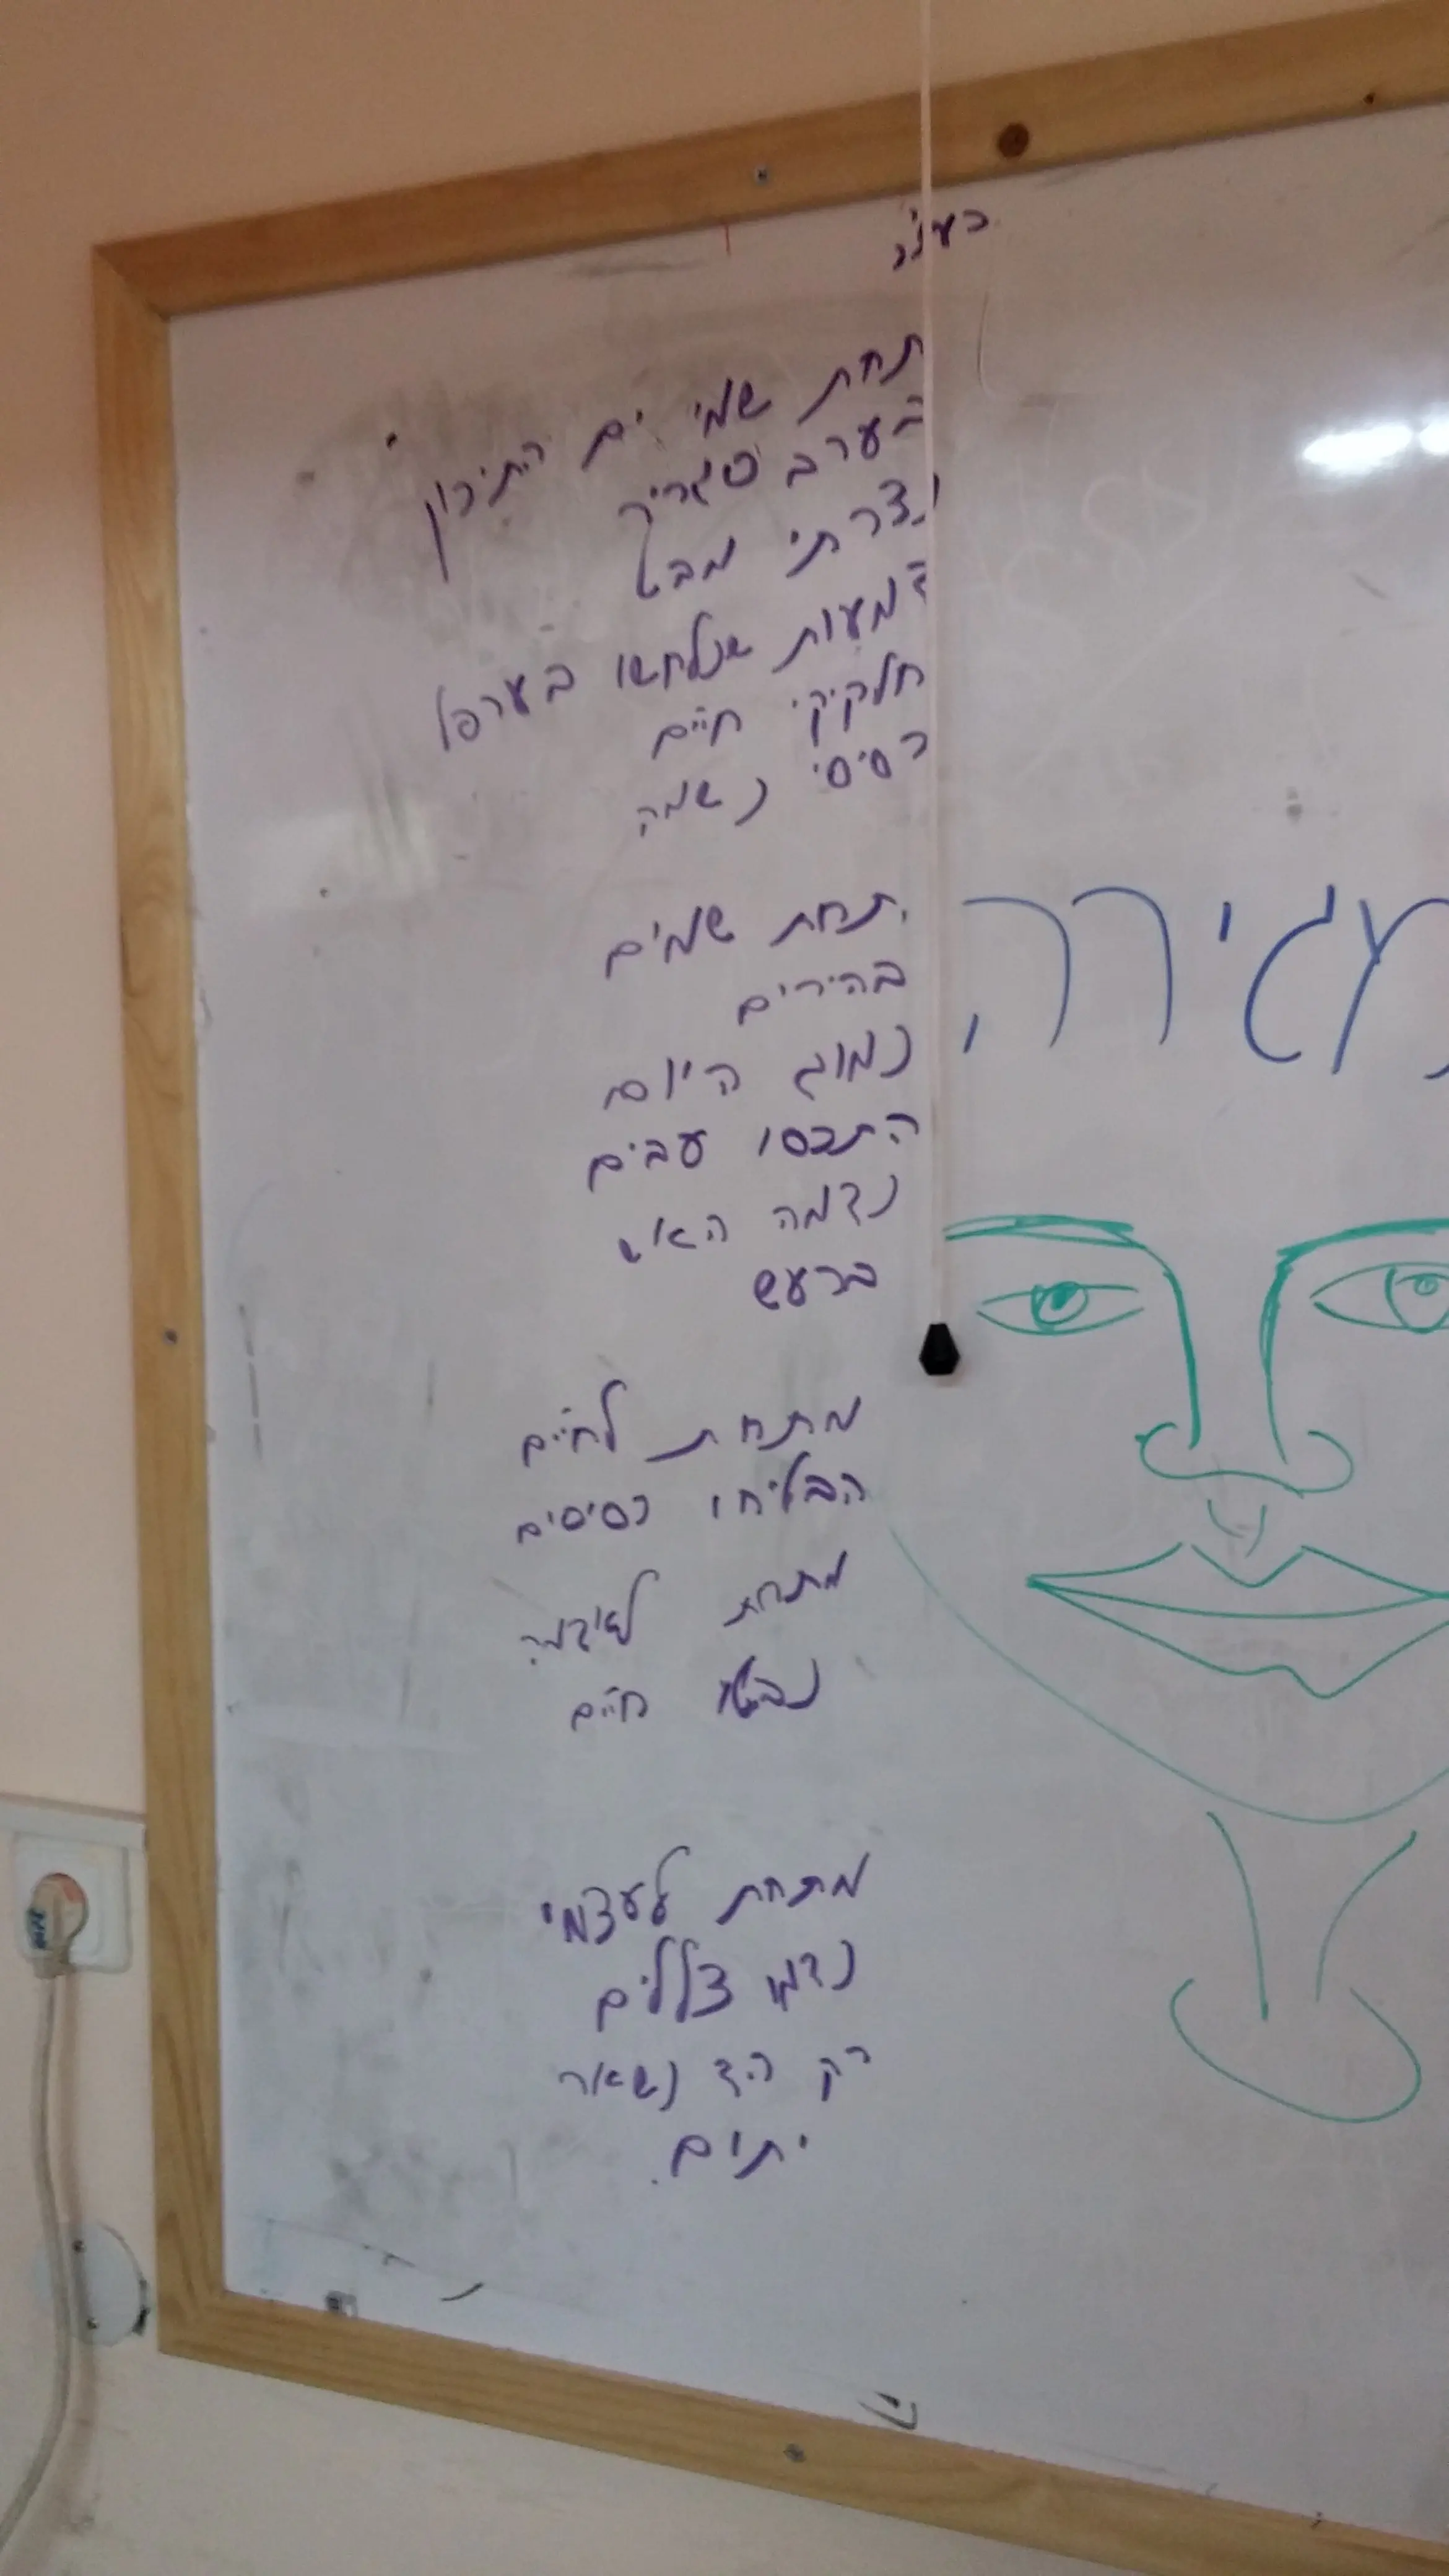 בעז״ה
תחת שמי ים התיכון
הערב סגריר
נצרתי מבט
דמעות שנלחשו בערפל
חלקיקי חיים
רסיסי נשמה
תחת שמים
בהירים
נמוג היום
התכסו עבים
נדמה האש
ברעש
מגירה
מתחת לחיים
הבליחו רסיסים
מתחת לאדמה
נבטו חיים
מתחת לעצמי
נדמו צלילים
רק הד נשאר
יתום.